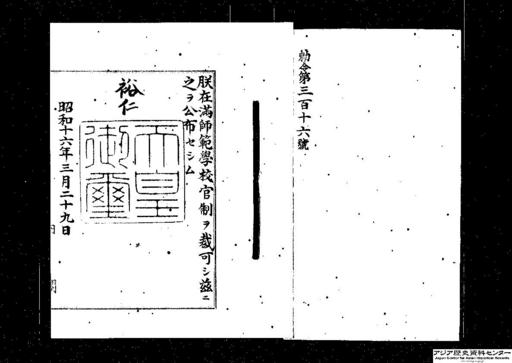 勅令第三百十六號
朕在滿師範學校官制ヲ裁可シ茲ニ
之ヲ公布セシム
裕仁
天皇
御璽
昭和十六年三月二十九日
アジア歴史資料センター
Japan Center for Asian Historical Records